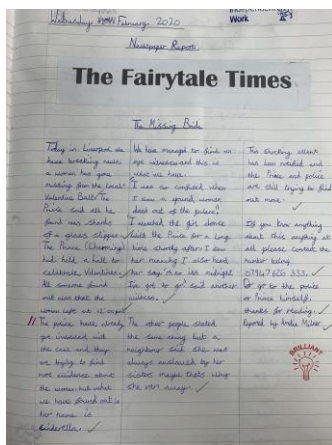 Wednesday February 2020
Independent
Work
Newspaper Report
The Fairytale Times
The Missing Bride
Today in Liverpool we
have breaking news
a woman has gone
missing from the local
Valentine Ball! The
Prince said all he
found was shards
of a glass slipper.
The Prince (Charming)
had held a ball to
celebrate Valentines.
All someone found
out was that the
woman left at 12
The police have already
got involved with
the case and they
are trying to find
out evidence about
the woman but what
we have found out is
her name is
Cinderella.
We have managed to find an
eye witness and this is
what we have.
I was so confused when
I saw a young woman
dash out of the palace,
I watched the girl dance
with the Prince for a long
time shortly after I saw
her running I also heard
her say 'oh its midnight
I've got to go' said another
witness.
The other people stated
the same thing but a
neighbour said she was
always enslaved by her
sisters maybe thats why
she ran away.
The shocking
has been and
the Prince and police
are still trying to find
out more.
If you know anything
about this anything at
all please contact the
number below
333.
Or go to the police
or Prince himself,
thanks for reading.
Reported by
BRILLIANT